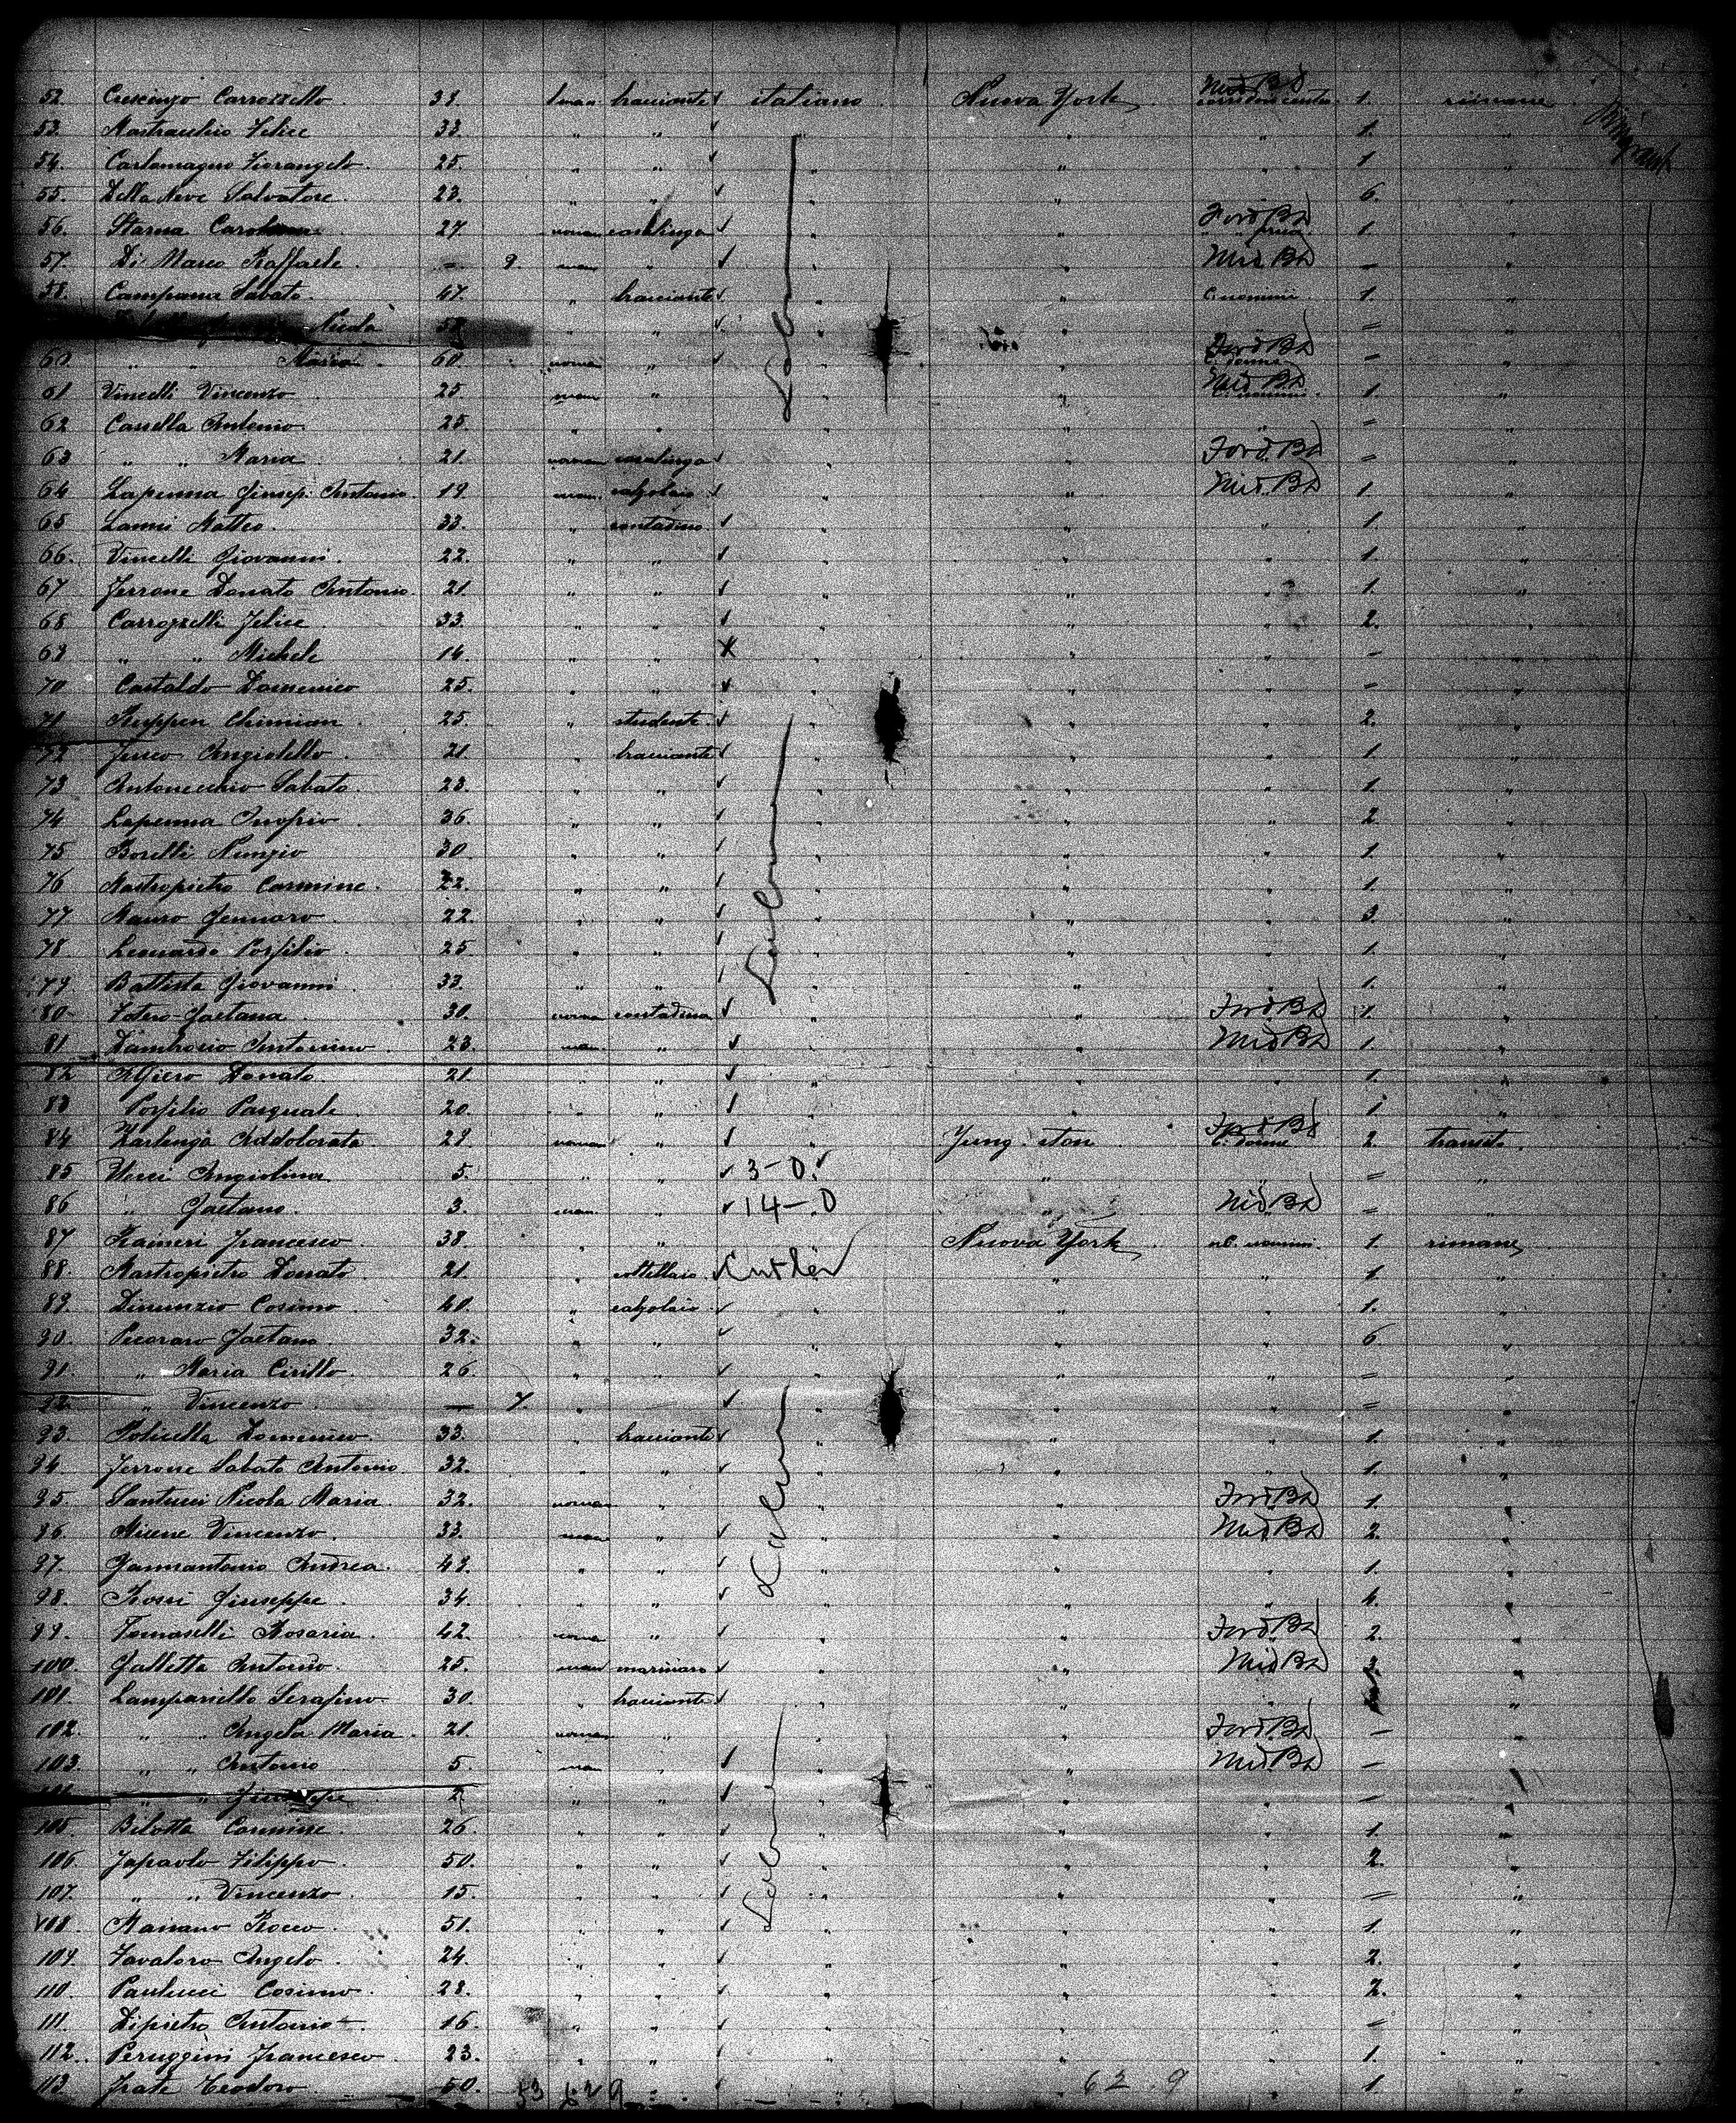 52. Crescenzo Carrozzello. 38. man bracciante italiano. Nuova York Mid Bd 1. rimane
53. Mastracchio Felice 33. " " " " " 1. "
54. Carlomagno Fiorangelo. 25. " " " " " 1 "
55. Della Neve Salvatore. 23. " " " " " 6. "
56. Starna 27 woman casalinga " " Ford Bd 1. "
57. Di Marco Raffaele. — 9. man " " " Mid Bd — "
58. Campana Sabato. 47. " bracciante " " C. uomini 1. "
Nicola 58 " " " = "
60. " " Maria. 60. woman " " " Ford Bd C. donne — "
61 Vincelli Vincenzo 25. man " " " Mid Bd C. uomini. 1. "
62 Casella Antonio 25. " " " " " = "
63 " " Maria 21. woman casalinga " " Ford. Bd = "
64 Lapenna Giusep. Antonio. 19. man. calzolaio " " Mid. Bd 1 "
65 Lanni Matteo. 33. " contadino " " " 1. "
66. Vincelli Giovanni. 22. " " " " " 1. "
67 Ferrone Donato Antonio. 21. " " " " " 1. "
68 Carrozzelli Felice 33. " " " " " 2. "
69 " " Michele 14. " " X " " " - "
70 Castaldo Domenico 25. " " " " " - "
71 Ruppen Chimian 25. " studente " " " 2. "
72 Fusco Angiolello. 21. " bracciante " " " 1. "
73 Antonecchio Sabato. 23. " " " " " 1 "
74 Lapenna Onofrio 36. " " " " " 2. "
75 Borelli Nunzio 30. " " " " " 1. "
76 Mastropietro Carmine. 22. " " " " " 1. "
77 Mauro Gennaro 22. " " " " " 3. "
78 Leonardo Porfilio 25 " " " " " 1. "
79 Battista Giovanni. 33. " " " " " 1. "
80 Gaetana 30. woman contadina " " Ford Bd 1. "
81 Dambrosio Antonino 23. man. " " " Mid Bd 1. "
82 Donato. 21. " " " " " 1. "
83 Porfilio Pasquale. 20. " " " " " 1 "
84 Zarlenga Addolorata 29. woman " " Jung-ston Ford Bd C. donne 2. transito.
85 Angiolina 5. " " 3-0. " = "
86 " Gaetano. 3. man. " 14-0 " Mid Bd = "
87 Raineri Francesco. 38. " " Nuova York C. uomini. 1. rimane
88. Mastropietro Donato. 21. " coltellaio. Cutler " " 1. "
89. Dinunzio Cosimo 40. " calzolaio. " " " 1. "
90. Pecoraro Gaetano 32. " " " " " 6 "
91. " Maria Cirillo. 26. " " " " " = "
92. " Vincenzo — 7. " " " " " = "
93. Policella Domenico. 33. " bracciante " " " 1. "
94. Ferrone Sabato Antonio. 32. " " " " " 1. "
95. Santucci Nicola Maria. 32. woman " " " Ford Bd 1. "
96. Vincenzo. 33. man " " " Mid Bd 2. "
97. Giannantonio Andrea. 43. " " " " " 1. "
98. Rossi Giuseppe. 34. " " " " " 4. "
99. Tomaselli Rosaria. 42. woman " " " Ford. Bd 2. "
100. Galletta Antonio. 25. man marinaro " " Mid Bd "
101. Lampariello Serafino 30. " bracciante " " " "
102. " " Angela Maria. 21. woman " " " Ford. Bd — "
103. " " Antonio 5. man " " " Mid. Bd — "
" " Giuseppe 2. " " " " " — "
105. Bilotta Carmine. 26. " " " " " 1 "
106. Japaolo Filippo. 50. " " " " " 2. "
107. " " Vincenzo. 15. " " " " " = "
108. Mariano Rocco. 51. " " " " " 1. "
109. Favaloro Angelo. 24. " " " " " 2. "
110. Paolucci Cosimo. 28. " " " " " 2. "
111. Dipietro Antonio 16. " " " " " = "
112. Peruggini Francesco. 23. " " " " " 1. "
113. Frate Teodoro 50. " " " " " 1 "
53 629 62 9